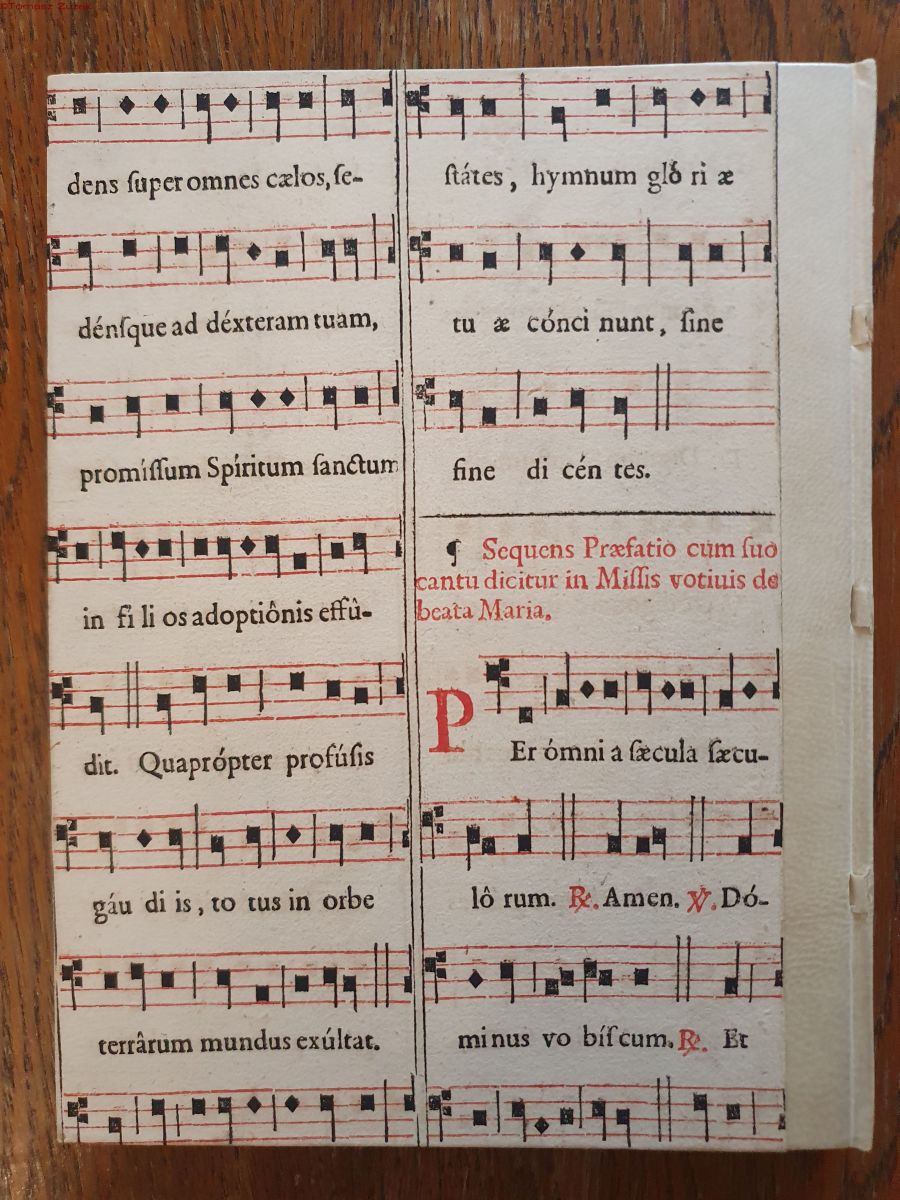 ©Tomasz Żurek
dens ſuper omnes cælos, ſe-
dénſque ad déxteram tuam,
promíſſum Spíritum ſanctum
in fi li os adoptiônis effû-
dit. Quaprópter profúſis
gáu di is, to tus in orbe
terrârum mundus exúltat.
ſtátes, hymnum gló ri æ
tu æ cónci nunt, ſine
fine di cén tes.
¶ Sequens Præfatio cum ſuo
cantu dicitur in Miſſis votiuis de
beata Maria.
PEr ómni a ſæcula ſæcu-
lô rum. ℟. Amen. ℣. Dó-
minus vo bíſcum. ℟. Et